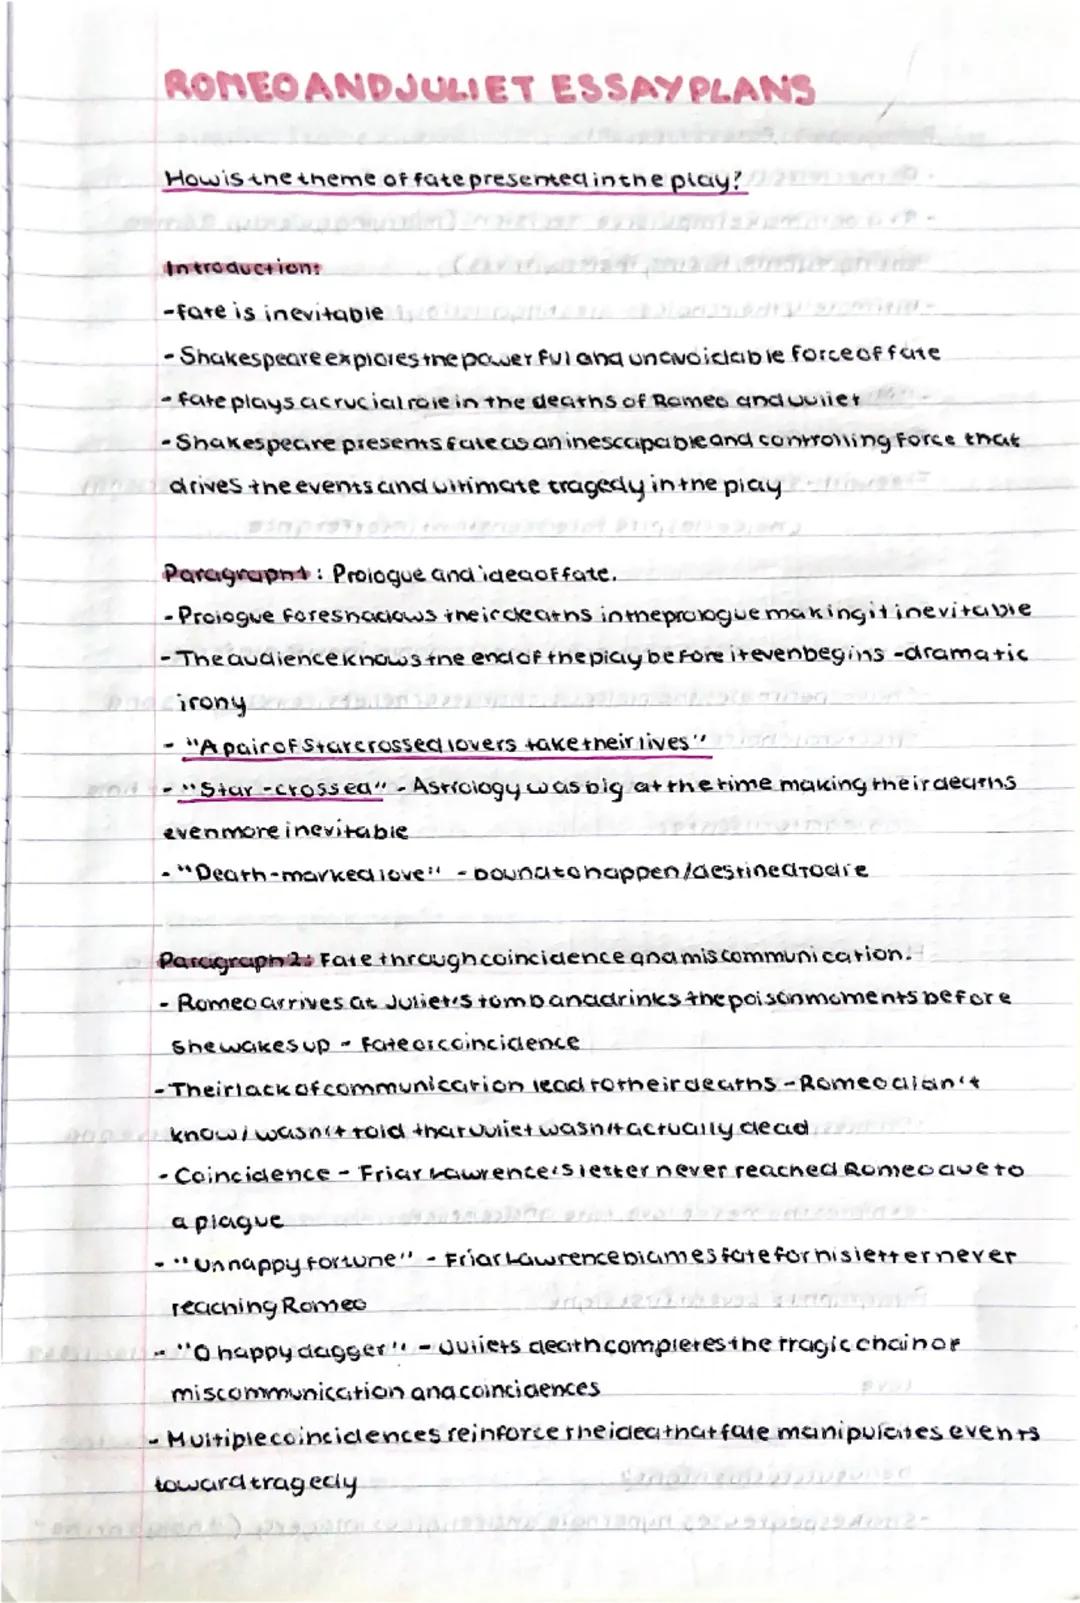 ROMEO AND JULIET ESSAY PLANS
How is the theme of fate presented in the play?
Introduction:
- fate is inevitable
- Shakespeare explores the powerful and unavoidable force of fate
- fate plays a crucial role in the deaths of Romeo and Juliet
- Shakespeare presents fate as an inescapable and controlling force that
drives the events and ultimate tragedy in the play
Paragraph 1: Prologue and idea of fate.
- Prologue foreshadows their deaths in the prologue making it inevitable
- The audience knows the end of the play before it even begins - dramatic
irony
- "A pair of Star crossed lovers take their lives"
- "Star-crossed" - Astrology was big at the time making their deaths
even more inevitable
- "Death-marked love" - bound to happen/destined to die
Paragraph 2: Fate through coincidence and miscommunication.
- Romeo arrives at Juliet's tomb and drinks the poison moments before
she wakes up - fate or coincidence
- Their lack of communication lead to their deaths - Romeo didn't
know/wasn't told that Juliet wasn't actually dead
- Coincidence - Friar Lawrence's letter never reached Romeo due to
a plague
- "Unhappy fortune" - Friar Lawrence blames fate for his letter never
reaching Romeo
- "O happy dagger" - Juliets death completes the tragic chain of
miscommunication and coincidences
- Multiple coincidences reinforce the idea that fate manipulates events
toward tragedy